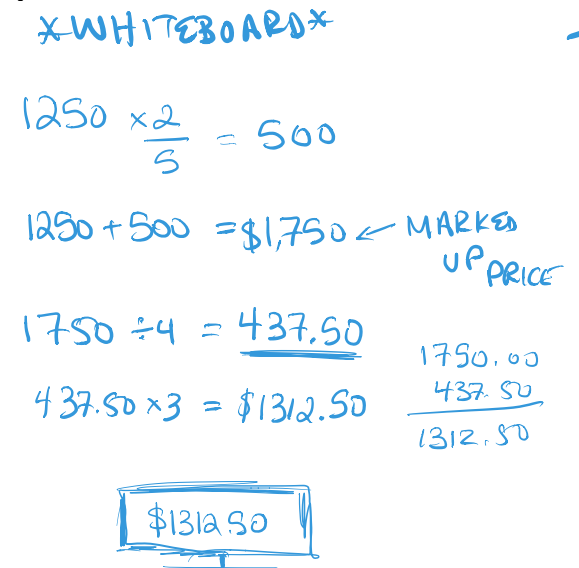 *WHITEBOARD*
1250 × 2/5 = 500
1250 + 500 = $1,750 ← MARKED UP PRICE
1750 ÷ 4 = 437.50
437.50 × 3 = $1312.50
1750.00
437.50
1312.50
$1312.50